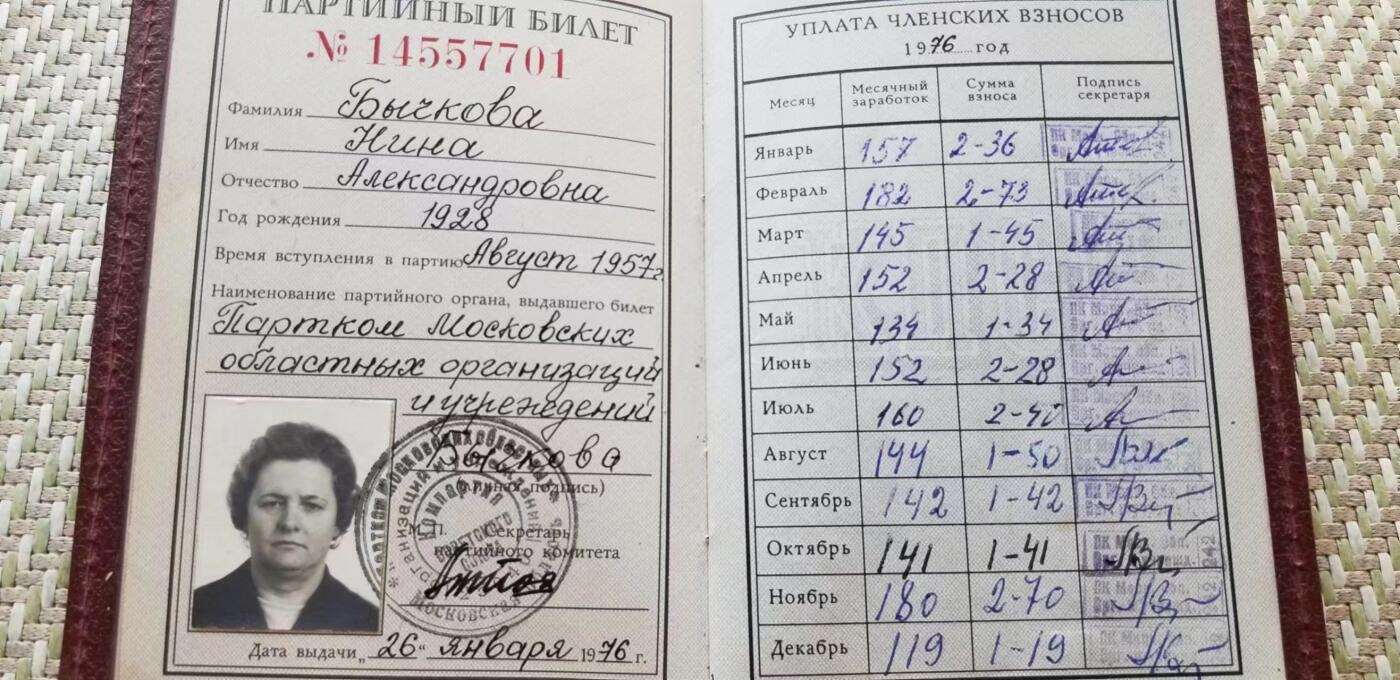 ПАРТИЙНЫЙ БИЛЕТ
№ 14557701
Фамилия Бычкова
Имя Нина
Отчество Александровна
Год рождения 1928
Время вступления в партию Август 1957г.
Наименование партийного органа, выдавшего билет
Партком Московских
областных организаций
и учреждений
(личная подпись)
М.П. Секретарь
партийного комитета
Дата выдачи „26“ января 1976 г.
УПЛАТА ЧЛЕНСКИХ ВЗНОСОВ
1976 год
Месяц Месячный заработок Сумма взноса Подпись секретаря
Январь 157 2-36
Февраль 182 2-73
Март 145 1-45
Апрель 152 2-28
Май 134 1-34
Июнь 152 2-28
Июль 160 2-40
Август 144 1-50
Сентябрь 142 1-42
Октябрь 141 1-41
Ноябрь 180 2-70
Декабрь 119 1-19